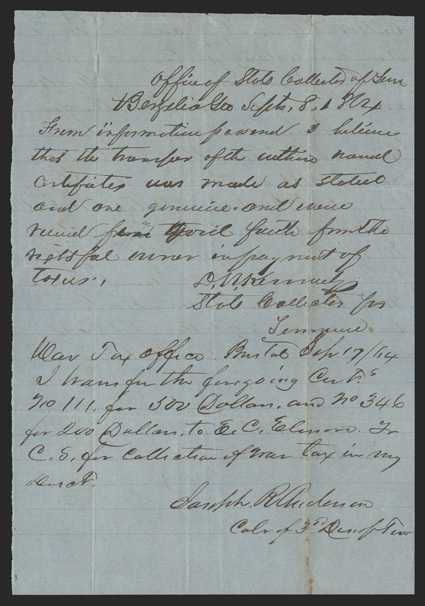 Office of State Collector of Tenn
Berzelia Ga Septr, 8, 1864
From information possessed I believe
that the transfer of the within named
certificates was made as stated
and are genuine and were
received in good faith from the
rightful owner in payment of
taxes,
State Collector for
Tennessee
War Tax Office Bristol Sep 17/64
I transfer the foregoing Certs
No 111, for 500 Dollars, and No 346
for 200 Dollars, to E. C. Elmore Tr
C. S, for collection of war tax in my
Joseph R Anderson
Colr of 3d of Ten